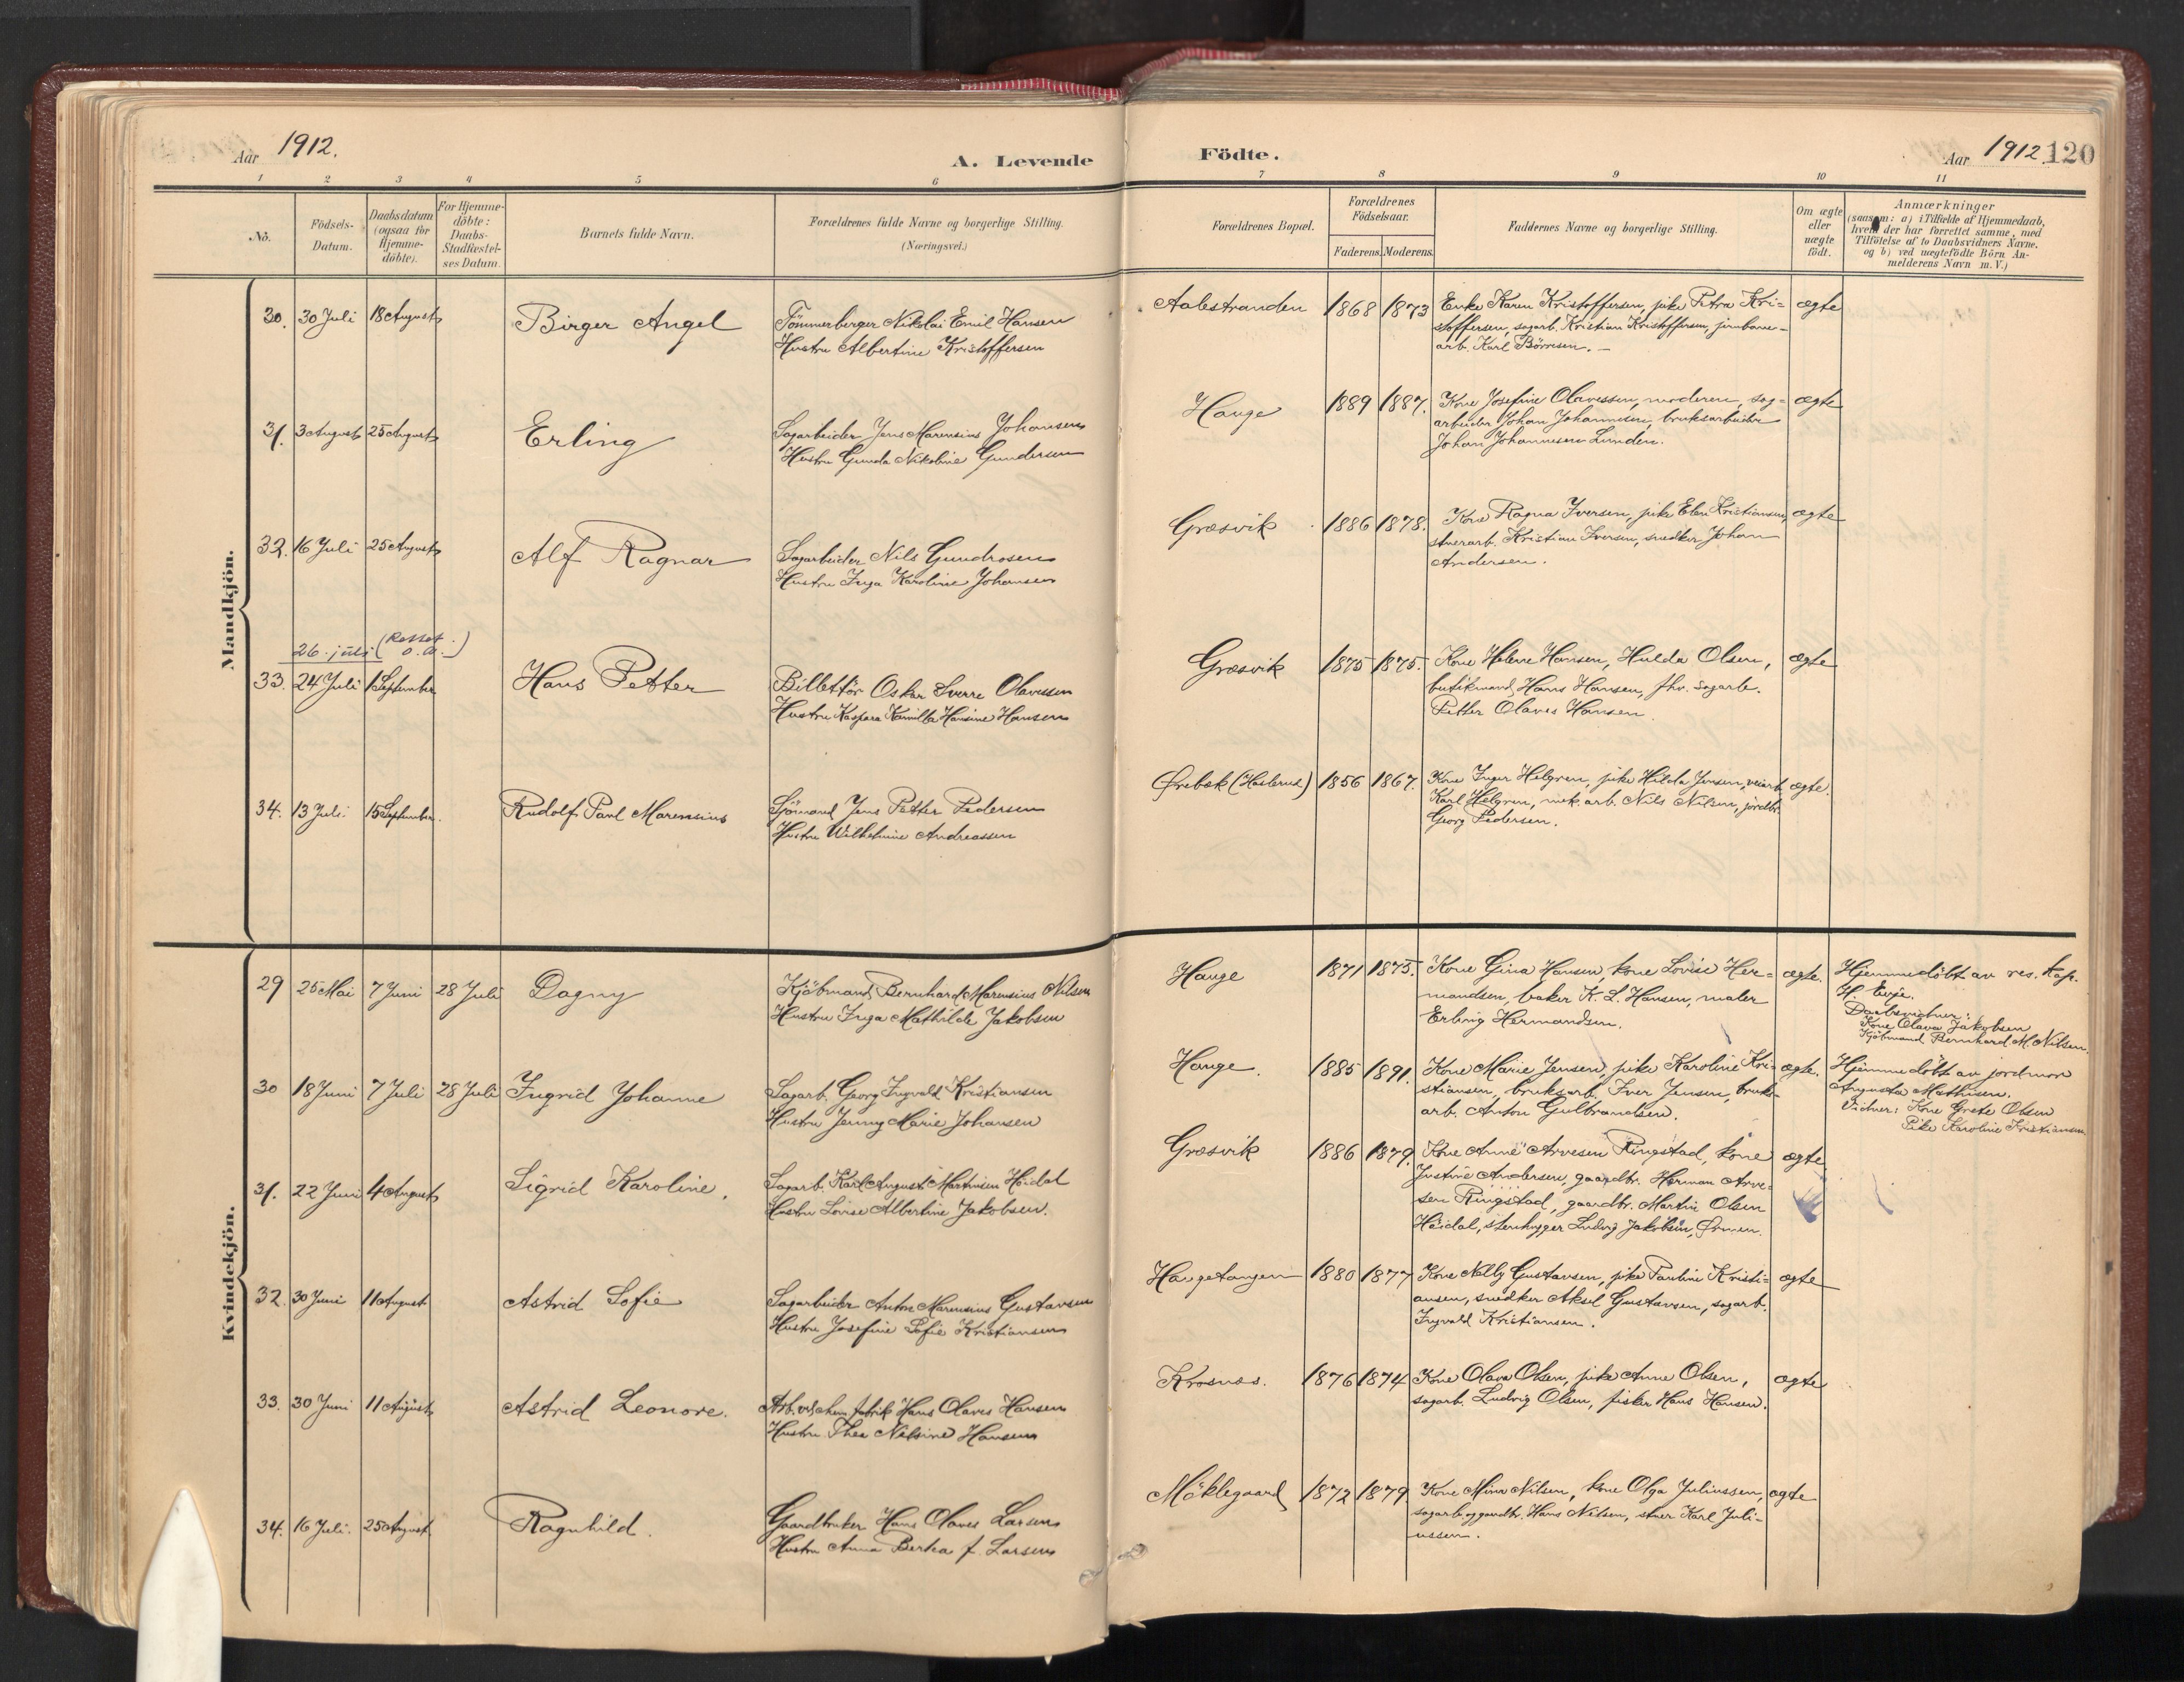 Aar 1912.
A. Levende Födte.
Aar 1912 120
1 2 3 4 5 6 7 8 9 10 11
No.
Födsels-
Datum.
Daabsdatum
(ogsaa for
Hjemme-
döbte).
For Hjemme-
döbte:
Daabs-
Stadfæstel-
ses Datum.
Barnets fulde Navn.
Forældrenes fulde Navne og borgerlige Stilling.
(Næringsvei.)
Forældrenes Bopæl.
Forældrenes
Födselsaar.
Faderens. Moderens.
Faddernes Navne og borgerlige Stilling.
Om ægte
eller
uægte
födt.
Anmærkninger
(saasom: a) i Tilfælde af Hjemmedaab,
hvem der har forrettet samme, med
Tilföielse af to Daabsvidners Navne.
og b) ved uægtefödte Börn An-
melderens Navn m. V.)
Mandkjön.
30. 30 Juli 18 August Birger Angel Tömmerberger Nikolai Emil Hansen
Hustru Albertine Kristoffersen
Aalestranden 1868 1873 Enke Karen Kristoffersen, pike Petra Kri=
stoffersen, sagarb. Kristian Kristoffersen, jernbane-
arb. Karl Börresen. —
ægte
31. 3 August 25 August Erling Sagarbeider Jens Marensius Johansen
Hustru Gunda Nikoline Gundersen
Hauge 1889 1887. Kone Josefine Olavessen, moderen, sag=
arbeider Johan Johannesen, bruksarbeider
Johan Johannesen Lunden.
ægte
32. 16 Juli 25 August Alf Ragnar Sagarbeider Nils Gundrosen
Hustru Inga Karoline Johansen
Græsvik 1886 1878. Kone Ragna Iversen, pike Elen Kristiansen,
stuerarb. Kristian Iversen, snedker Johan
Andersen.
ægte
26. juli (Rettet o. a.)
33. 24 Juli 1 September Hans Petter Billettör Oskar Sverre Olavessen
Hustru Kaspara Kamilla Hansine Hansen
Græsvik 1875 1875. Kone Helene Hansen, Hulda Olsen,
butikmand Hans Hansen, fhv. sagarb.
Petter Olaves Hansen.
ægte
34. 13 Juli. 15 September. Rudolf Paul Marensius Sjömand Jens Petter Pedersen
Hustru Wilhelmine Andreassen
Ørebek (Haslerud) 1856 1867. Kone Inger Helgren, pike Hilda Jensen, veiarb.
Karl Helgren, mek. arb. Nils Nilsen, jordbr.
Georg Pedersen.
ægte.
Kvindekjön.
29 25 Mai 7 Juni 28 Juli Dagny Kjöbmand Bernhard Marensius Nilsen
Hustru Inga Mathilde Jakobsen
Hauge 1871 1875. Kone Gina Hansen, kone Lovise Her=
mandsen, baker K. L. Hansen, maler
Erling Hermandsen.
ægte. Hjemmedöbt av res. kap.
H. Evje.
Daabsvidner:
Kone Olava Jakobsen
Kjöbmand Bernhard M. Nilsen.
30 18 Juni 7 Juli 28 Juli Ingrid Johanne Sagarb. Georg Ingvald Kristiansen
Hustru Jenny Marie Johansen
Hauge. 1885 1891. Kone Marie Jensen, pike Karoline Kri=
stiansen, bruksarb. Iver Jensen, bruks=
arb. Anton Gulbrandsen.
ægte. Hjemmedöbt av jordmor
Augusta Mathisen.
Vidner: Kone Grete Olsen
Pike Karoline Kristiansen
31. 22 Juni 4 August Sigrid Karoline. Sagarb. Karl August Martinsen Höidal
Hustru Lovise Albertine Jakobsen.
Græsvik 1886 1879. Kone Anne Arvesen Ringstad, kone
Justine Andersen, gaardbr. Herman Arve=
sen Ringstad, gaardbr. Martin Olsen
Höidal, stenhugger Ludvig Jakobsen, Ørmen.
ægte
32. 30 Juni 11 August Astrid Sofie Sagarbeider Anton Marensius Gustavsen
Hustru Josefine Sofie Kristiansen
Haugetangen 1880 1877 Kone Nelly Gustavsen, pike Pauline Kristi=
ansen, snedker Aksel Gustavsen, sagarb.
Ingvald Kristiansen.
ægte
33. 30 Juni 11 August Astrid Leonore. Arb. ved chem. fabrik Hans Olaves Hansen
Hustru Thea Nilsine Hansen
Krosnæs. 1876 1874 Kone Olava Olsen, pike Anne Olsen,
sagarb. Ludvig Olsen, fisker Hans Hansen.
ægte
34. 16 Juli. 25 August Ragnhild. Gaardbruker Hans Olaves Larsen
Hustru Anna Bertea f. Larsen
Möklegaard 1872 1879 Kone Mina Nilsen, kone Olga Juliussen,
sagarb. og gaardbr. Hans Nilsen, stuer Karl Juli-
ussen.
ægte